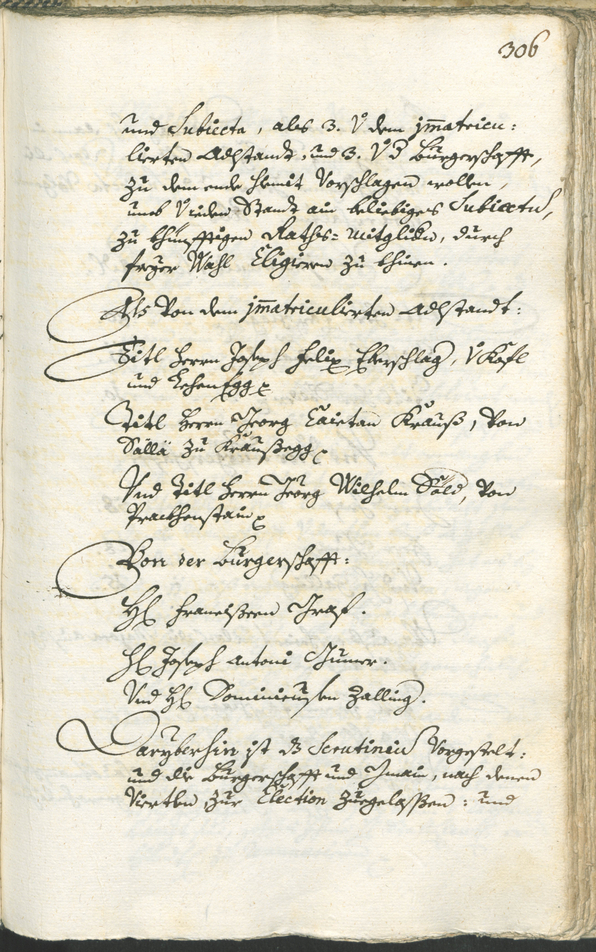 306
und Subiecta, als 3. V dem jm̄atricu:
lierten Adlstandt, und 3. V d Burgerschafft,
zu dem ende hiemit Vorschlagen wollen,
umb Beliebiges Subiectum,
zu khünfftigen Raths=mitglidern, durch
freyer Wahl Eligiern zu thuen.
Als Von dem jm̄atriculierten Adlstandt:
Titl Herrn Joseph Felix Eberschlag, V Kofl
und Lehenegg
Titl Herrn Georg Caietan Krauß, Von
Sälla zu Kraußegg
Und Titl Herrn Georg Wilhelm Söld, Von
Prackhenstain
Von der Burgerschafft:
H Francißcen Graf.
H Joseph Antoni
Und H Dominicußen Zalling.
Daryberhin ist dz Scrutiniū Vorgestelt:
und die Burgerschafft und nach denen
Viertln zur Election zuegelaßen: und